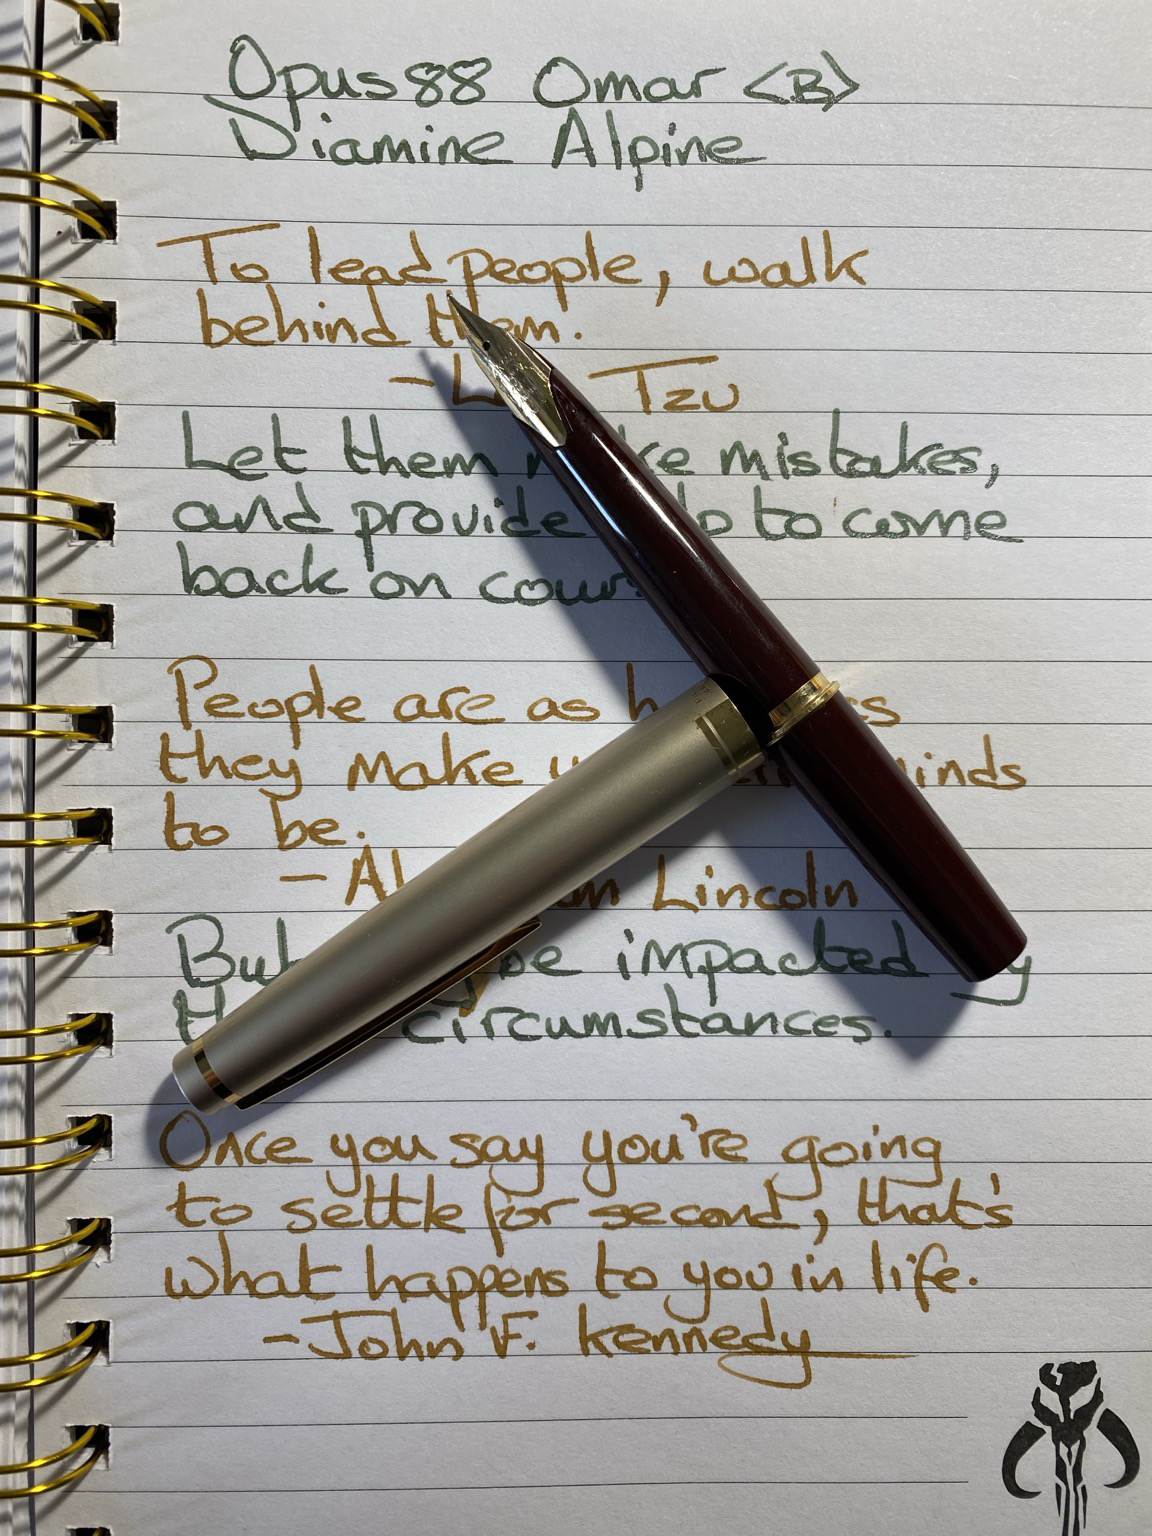 Opus 88 Omar <B>
Diamine Alpine
To lead people, walk
behind them.
- Tzu
Let them mistakes,
and provide to come
back on
People are as
they make minds
to be.
- Lincoln
But be impacted by
circumstances.
Once you say you're going
to settle for second, that's
what happens to you in life.
- John F. Kennedy